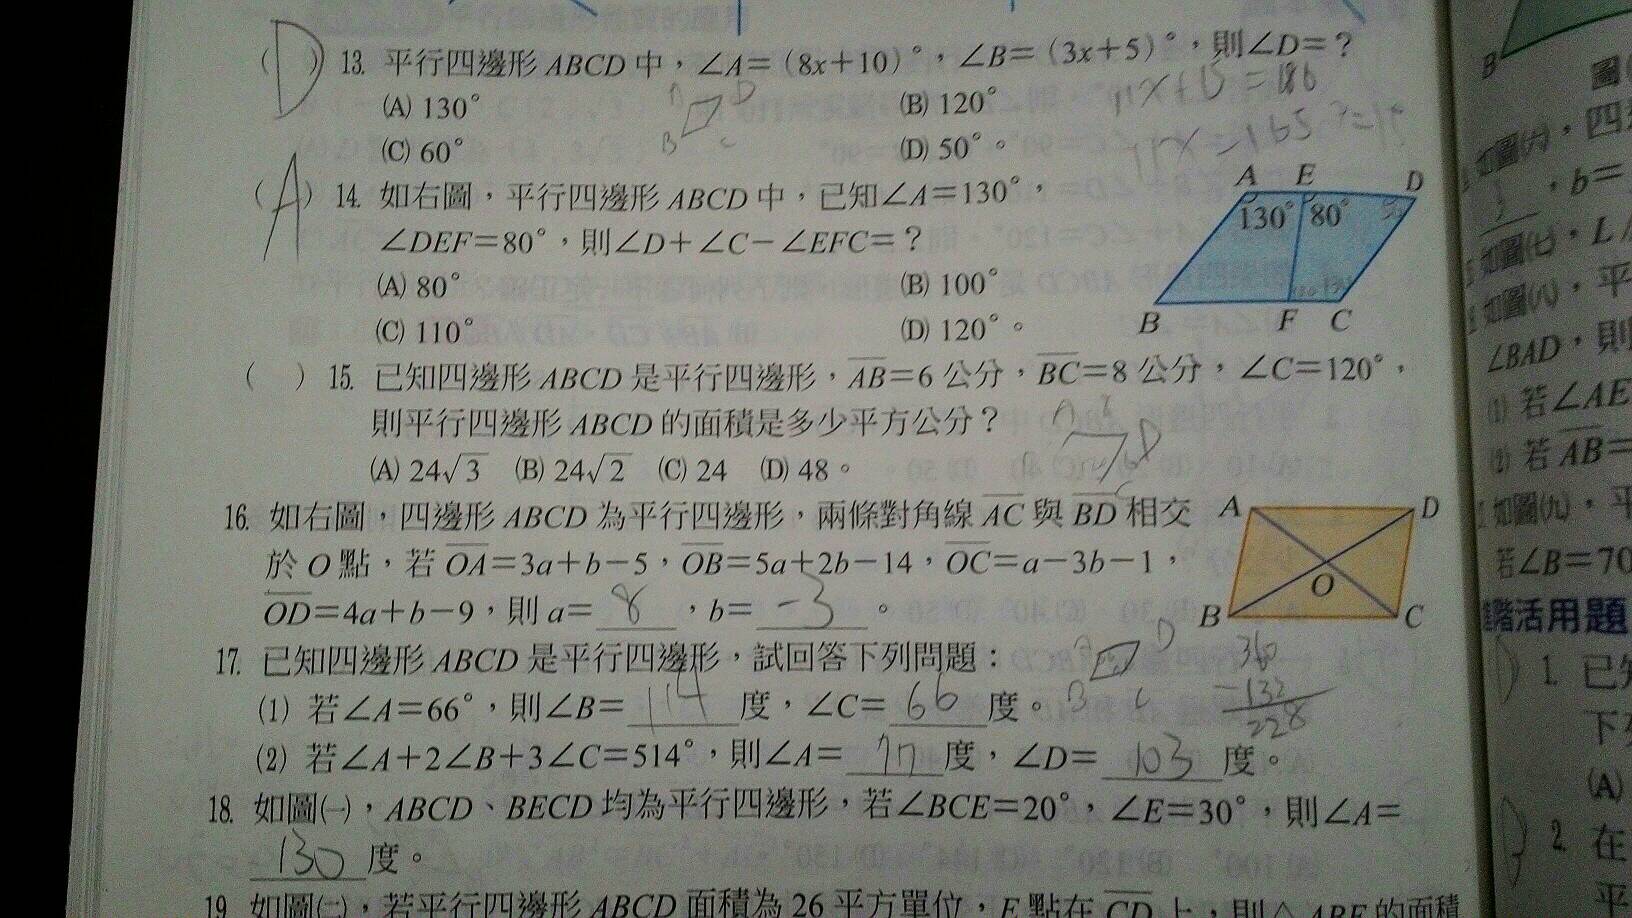 ( D ) 13. 平行四邊形 ABCD 中，∠A=(8x+10)°，∠B=(3x+5)°，則∠D=？
11x+15=180
(A) 130° (B) 120°
A D
B C
11x=165
(C) 60° (D) 50°。
( A ) 14. 如右圖，平行四邊形 ABCD 中，已知∠A=130°，
∠DEF=80°，則∠D+∠C-∠EFC=？
(A) 80° (B) 100°
(C) 110° (D) 120°。
A E D
130° 80°
B F C
( ) 15. 已知四邊形 ABCD 是平行四邊形，AB=6 公分，BC=8 公分，∠C=120°，
則平行四邊形 ABCD 的面積是多少平方公分？
A 8 D
(A) 24√3 (B) 24√2 (C) 24 (D) 48。
16. 如右圖，四邊形 ABCD 為平行四邊形，兩條對角線 AC 與 BD 相交
於 O 點，若 OA=3a+b-5，OB=5a+2b-14，OC=a-3b-1，
OD=4a+b-9，則 a= 8 ，b= -3 。
A D
O
B C
17. 已知四邊形 ABCD 是平行四邊形，試回答下列問題：
A D
B C
360
-132
228
(1) 若∠A=66°，則∠B= 114 度，∠C= 66 度。
(2) 若∠A+2∠B+3∠C=514°，則∠A= 77 度，∠D= 103 度。
18. 如圖㈠，ABCD、BECD 均為平行四邊形，若∠BCE=20°，∠E=30°，則∠A=
130 度。
19. 如圖㈡，若平行四邊形 ABCD 面積為 26 平方單位，E 點在 CD 上，則△ABE 的面積
B
圖
如圖㈥，四
，b=
如圖㈦，L
如圖㈧，平
∠BAD，則
(1) 若∠AE
(2) 若 AB=
如圖㈨，平
若∠B=70
階活用題
1. 已知
下列
(A)
2. 在
平